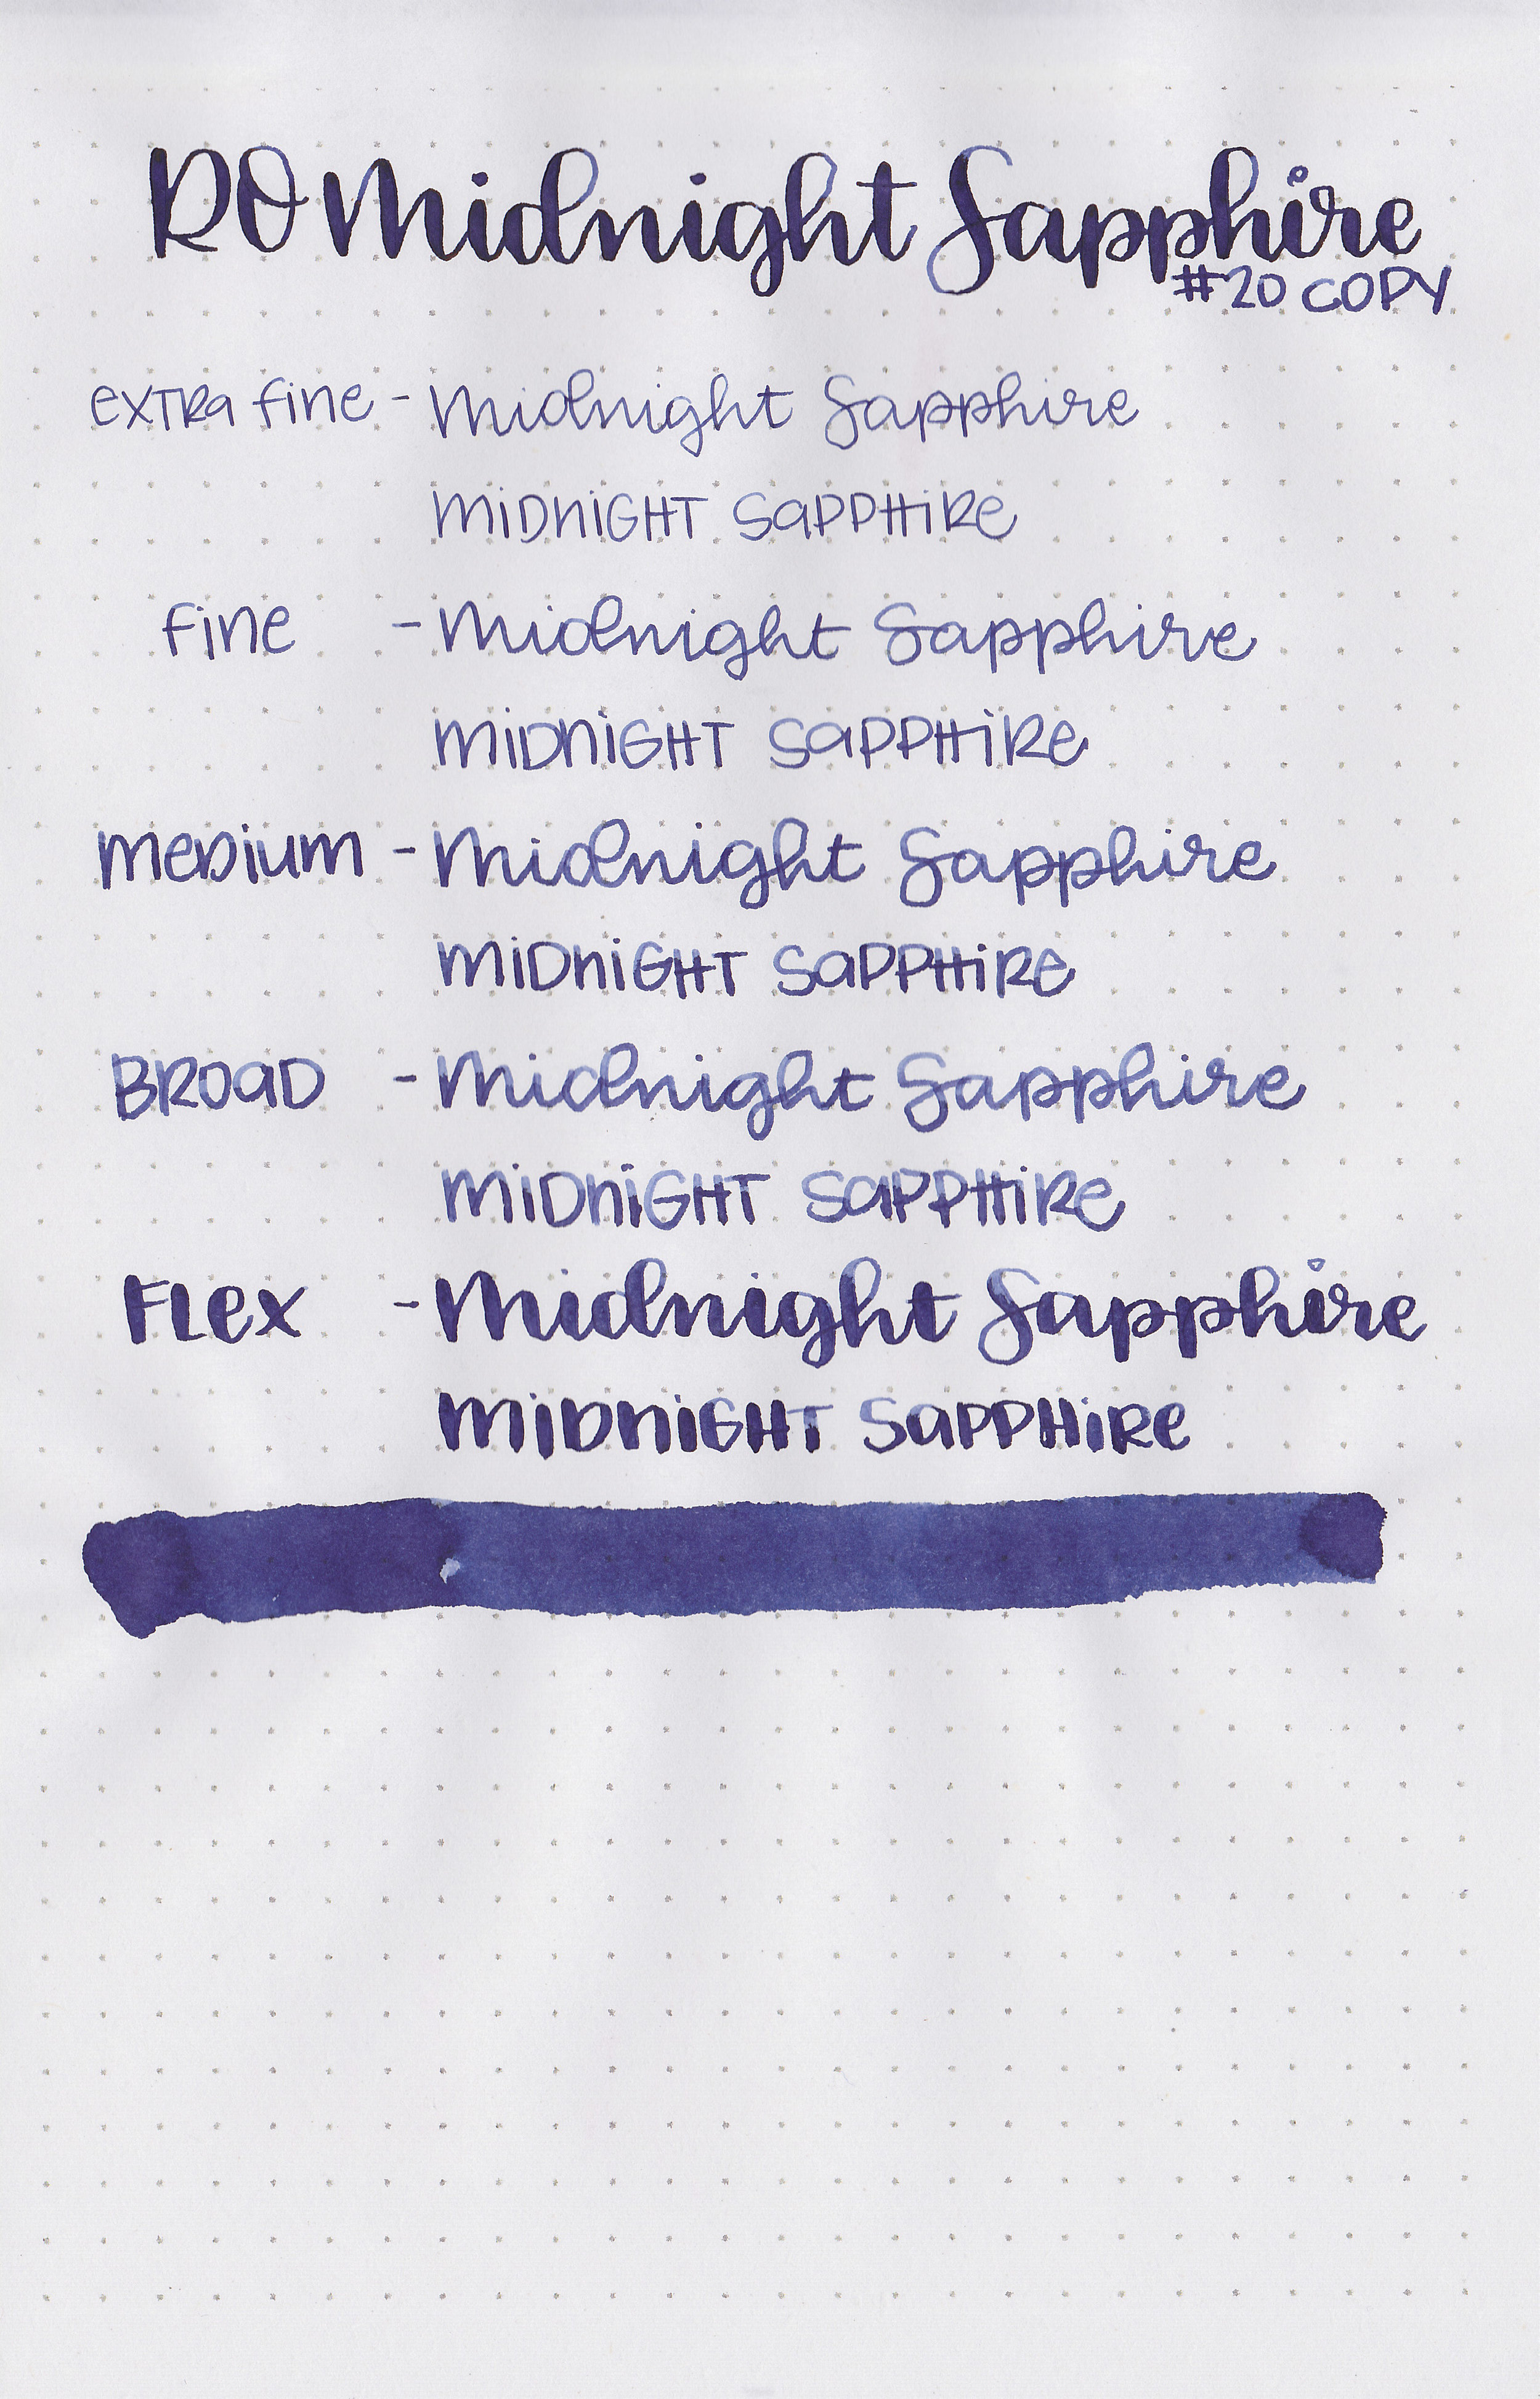 RO Midnight Sapphire
#20 COPY
extra fine - Midnight Sapphire
MIDNIGHT SAPPHIRE
fine - Midnight Sapphire
MIDNIGHT SAPPHIRE
Medium - Midnight Sapphire
MIDNIGHT SAPPHIRE
BROAD - Midnight Sapphire
MIDNIGHT SAPPHIRE
FLex - Midnight Sapphire
MIDNIGHT SAPPHIRE